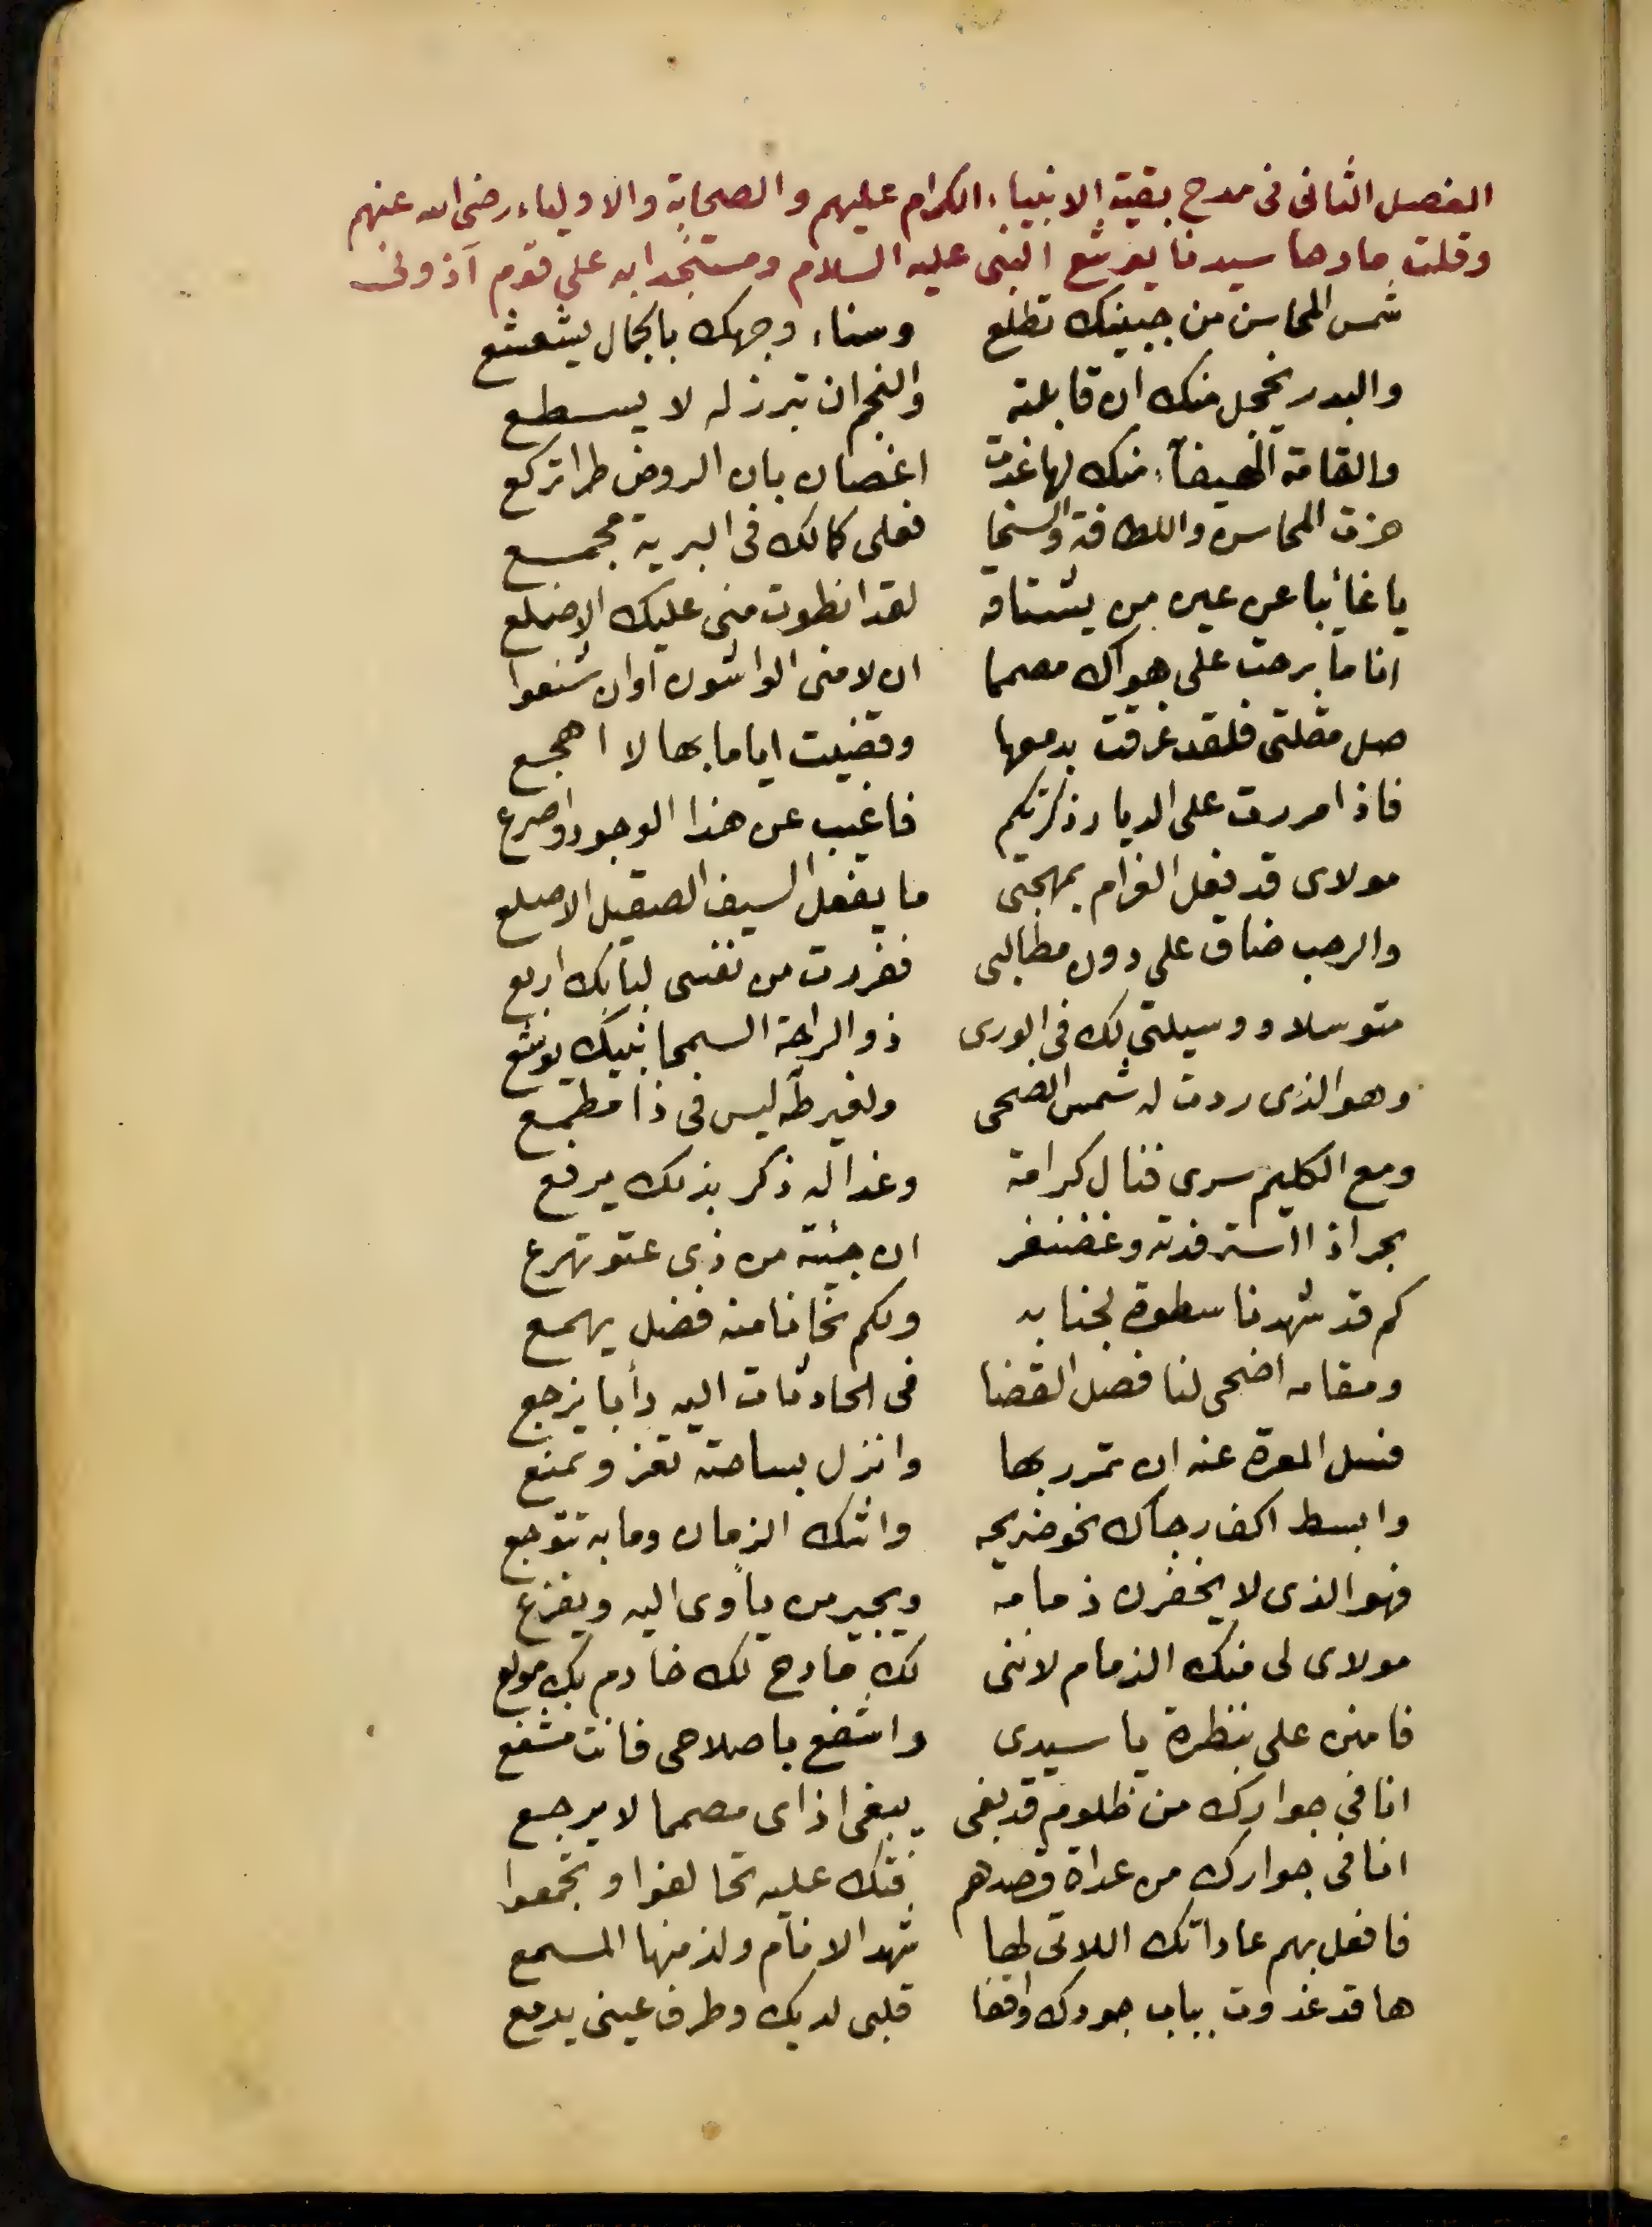 الفصل الثانى فى مدح بقية الانبياء الكرام عليهم والصحابة والاولياء رضى الله عنهم
وقلت مادحا سيدنا يوشع النبى عليه السلام ومستنجدا به على قوم آذونى
شمس المحاسن من جبينك تطلع وسناء وجهك بالجمال يشعشع
والبدر يخجل منك ان قابلته والنجم ان تبرز له لا يسطع
والقامة الهيفآء منك لها غدت اغصان بان الروض طرا تركع
حزت المحاسن واللطافة والسخا فعلى كمالك فى البرية مجمع
يا غائبا عن عين من يشتاقه لقد انطوت منى عليك الاضلع
انا ما برحت على هواك مصمما ان لامنى الواشون او ان شنعوا
صل مقلتى فلقد غرقت بدمعها وقضيت اياما بها لا اهجع
فاذا مررت على الديار ذكرتكم فاغيب عن هذا الوجود واصرع
مولاى قد فعل الغرام بمهجتى ما يفعل السيف الصقيل الاصلع
والرحب ضاق على دون مطالبى ففررت من نفسى لبابك اربع
متوسلا ووسيلتى لك فى الورى ذو الراحة السمحا نبيك يوشع
وهو الذى ردت له شمس الضحى ولغير طه ليس فى ذا مطمع
ومع الكليم سرى فنال كرامة وغدا له ذكر بذلك يرفع
بحر اذا استرفدته وغضنفر ان جئته من ذى عتو تهرع
كم قد شهدنا سطوة لجنابه ولكم نحانا منه فضل يهمع
ومقامه اضحى لنا فصل القضا فى الحادثات اليه دأبا يرجع
فسل المعرة عنه ان تمرر بها وانزل بساحته تعز وتمنع
وابسط اكف رجاك نحو ضريحه واشك الزمان وما به تتوجع
فهو الذى لا يخفرن ذمامه ويجير من يأوى اليه ويفزع
مولاى لى منك الذمام لاننى لك مادح لك خادم بك مولع
فامنن على بنظرة يا سيدى واشفع باصلاحى فانت مشفع
انا فى جوارك من ظلوم قد بغى يبغى اذاى مصمما لا يرجع
انا فى جوارك من عداة قصدهم فتك عليه تحالفوا وتجمعوا
فافعل بهم عاداتك اللاتى لها شهد الانام ولذ منها المسمع
ها قد غدوت بباب جودك واقفا قلبى لديك وطرف عينى يدمع